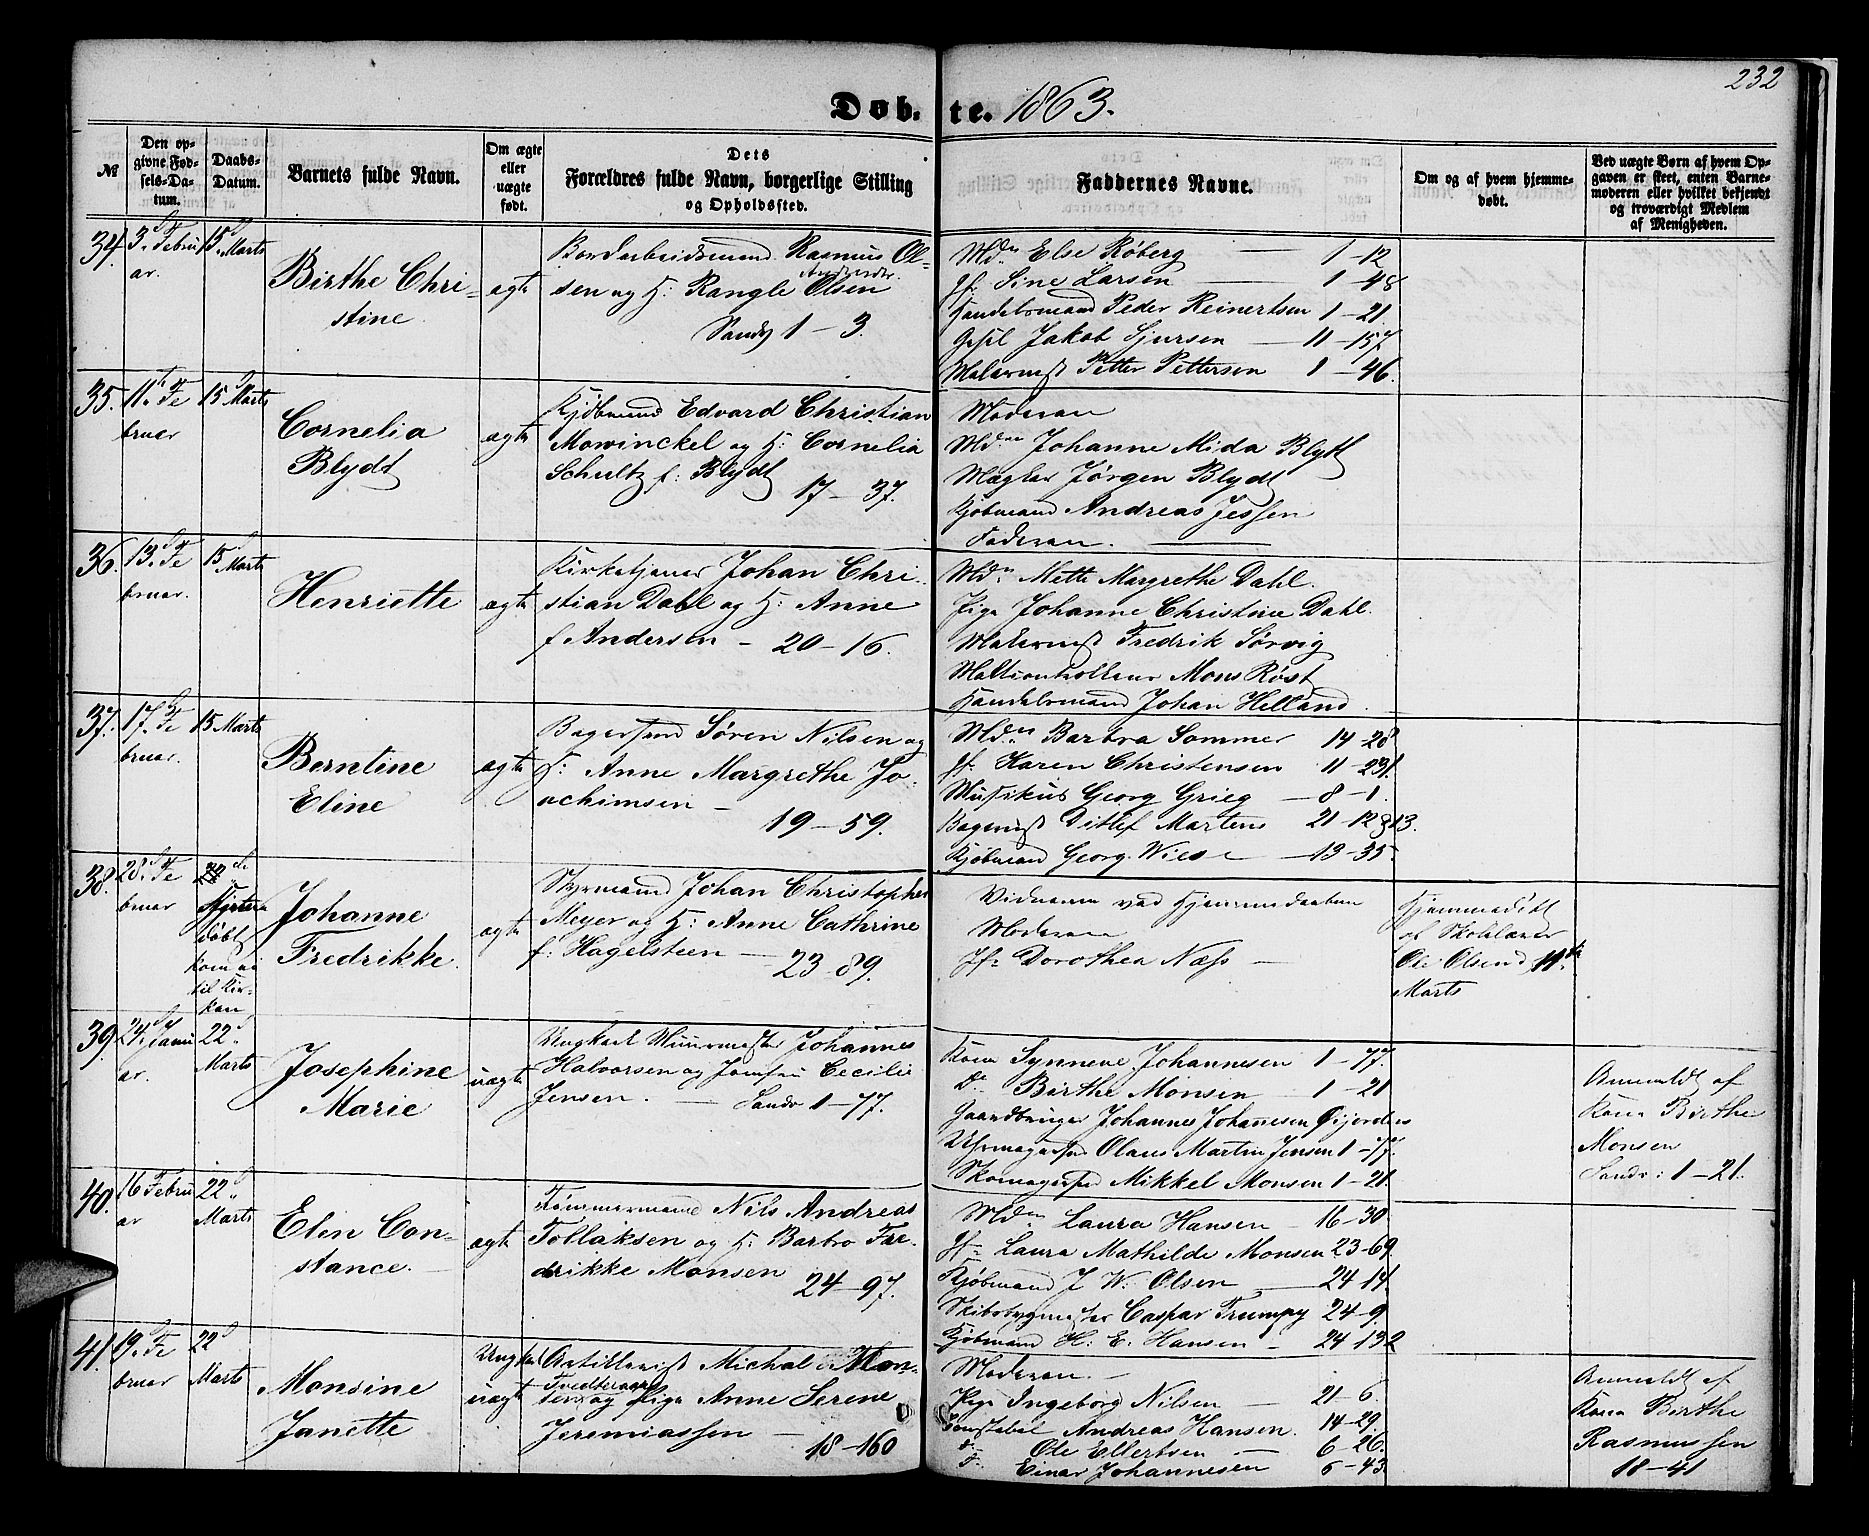 232
Døbte. 1863.
№
Den opgivne Fødsels-Datum.
Daabs-Datum.
Barnets fulde Navn.
Om ægte eller uægte født.
Dets Forældres fulde Navn, borgerlige Stilling og Opholdssted.
Faddernes Navne.
Om og af hvem hjemmedøbt.
Ved uægte Børn af hvem Opgaven er skeet, enten Barnemoderen eller hvilket bekjendt og troværdigt Medlem af Menigheden.
34. 3. Februar. 15. Marts
Birthe Christine
ægte
Bordarbeidsmand Rasmus Olsen og H: Rangle Olsen
Sandv 1-3.
Mdm Else Røberg 1-12
Jf. Sine Larsen 1-48
Handelsmand Peder Reinertsen 1-21
Jakob Sjursen 11-157
Malermst Petter Pettersen 1-46.
35. 11. Februar 15 Marts
Cornelia Blydt
ægte
Kjøbmand Edvard Christian
Mowinckel og H: Cornelia
Schultz f: Blydt 17-37.
Moderen
Mdm Johanne Mida Blytt
Mægler Jørgen Blydt
Kjøbmand Andreas Jessen
Faderen.
36. 13. Februar. 15 Marts
Henriette
ægte
Kirketjener Johan Christian Dahl og H: Anne
f Andersen - 20-16.
Mdm Mette Margrethe Dahl.
Pige Johanne Christine Dahl.
Malermst Fredrik Sørvig
Mons Røst
Handelsmand Johan Helland
37. 17. Februar. 15 Marts
Berntine Eline
ægte
Bagersvend Søren Nilsen og
H: Anne Margrethe Joachimsen -
19-59.
Mdm Barbra Sommer 14-28
Jf. Karen Christensen 11-231
Musikus Georg Grieg 8-1.
Bagermst Ditlef Martens 21-12
Kjøbmand Georg Wiese 13-35.
38. 28. Februar
døbt
kom
til Kirken
Johanne Fredrikke.
ægte
Styrmand Johan Christopher
Meyer og H: Anne Cathrine
f: Hagelsteen - 23-89.
Vidnerne ved Hjemmedaaben
Moderen
Jf: Dorothea Næss
Hjemmedøbt
af Skolelærer
Ole Olsen d 11te
Marts
39. 24. Januar. 22. Marts
Josephine Marie
uægte
Ungkarl Muurmester Johannes
Halvorsen og Jomfru Cecilie
Jensen. - Sandv 1-77.
Kone Synneve Johannesen 1-77.
Do Birthe Monsen 1-21
Gaardbruger Johannes Johannesen
Uhrmagersvd Olaus Martin Jensen 1-77.
Skomagersvd Mikkel Monsen 1-21.
Anmeldt af
Kone Birthe
Monsen
Sandv: 1-21.
40. 16 Februar 22. Marts
Elen Constance.
ægte
Tømmermand Nils Andreas
Tollaksen og H: Barbro Fredrikke Monsen
24-97.
Mdm Laura Hansen 16-30
Jf. Laura Mathilde Monsen 23-69
Kjøbmand J W. Olsen 24-14
Skibsbygmester Caspar Trumpy 24-9.
Kjøbmand H: E. Hansen 24-132
41. 19. Februar 22 Marts
Monsine Janette
uægte
Ungkarl Artillerist Michal Monsen og Pige Anne Serene
Jeremiassen - 18-160
Moderen.
Pige Ingeborg Nilsen 21-6
Konstabel Andreas Hansen. 14-29.
do Ole Ellertsen 6-26.
do Einar Johannesen 6-43
Anmeldt af
Kone Birthe
Rasmussen
18-41